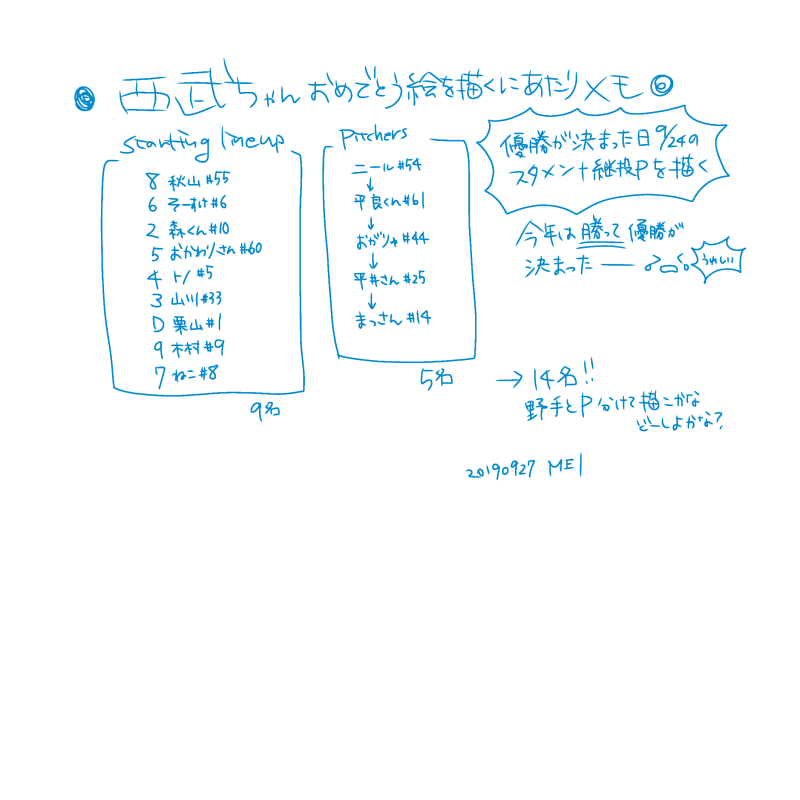 西武ちゃんおめでとう絵を描くにあたりメモ
starting lineup
8 秋山#55
6 そーすけ#6
2 森くん#10
5 おかわりさん#60
4 トノ#5
3 山川#33
D 栗山#1
9 木村#9
7 ねこ#8
9名
Pitchers
ニール#54
↓
平良くん#61
↓
おがりゅ#44
↓
平井さん#25
↓
まっさん#14
5名
優勝が決まった日9/24の
スタメン+継投Pを描く
今年は勝って優勝が
決まった──
うれしい
→14名!!
野手とP分けて描こかな
どーしよかな?
20190927 MEI